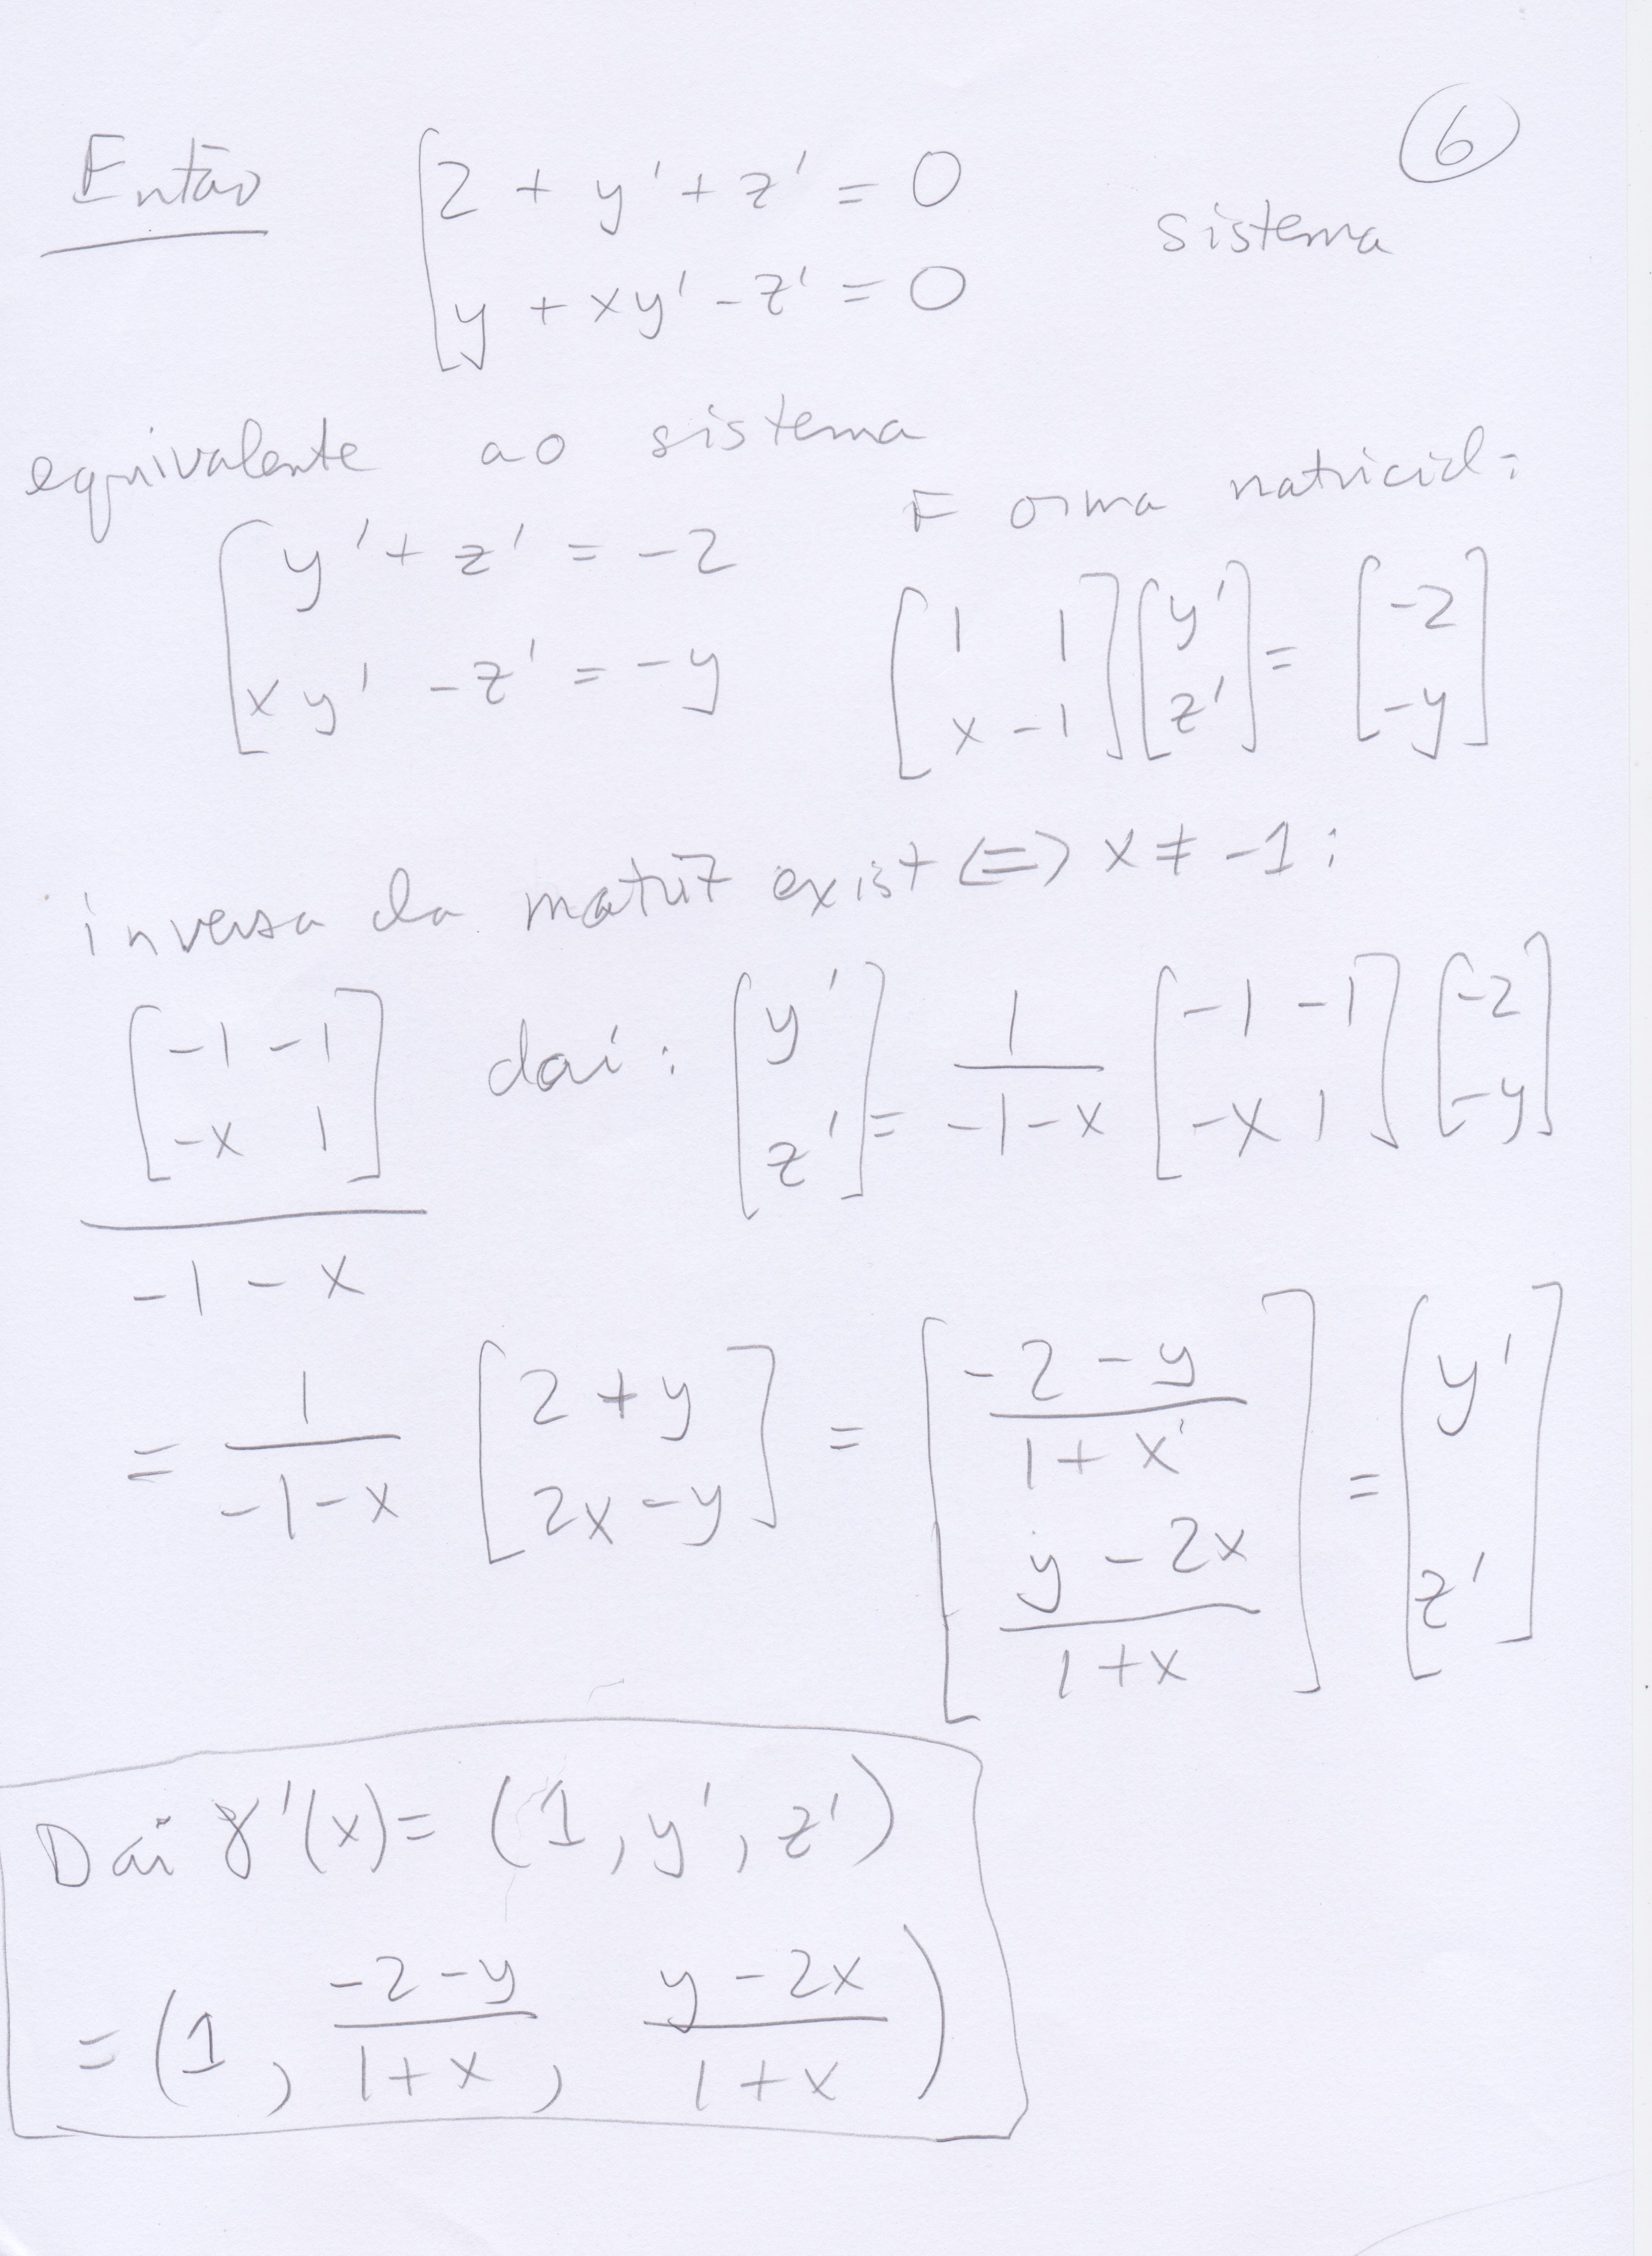 6
Então { 2 + y' + z' = 0 sistema
y + xy' - z' = 0
equivalente ao sistema
Forma matricial:
{ y' + z' = -2
xy' - z' = -y
[1 1; x -1] [y'; z'] = [-2; -y]
inversa da matriz exist <=> x ≠ -1 :
[-1 -1; -x 1] / (-1-x) daí: [y'; z'] = 1/(-1-x) [-1 -1; -x 1] [-2; -y]
= 1/(-1-x) [2+y; 2x-y] = [(-2-y)/(1+x); (y-2x)/(1+x)] = [y'; z']
Daí γ'(x) = (1, y', z')
= (1, (-2-y)/(1+x), (y-2x)/(1+x))